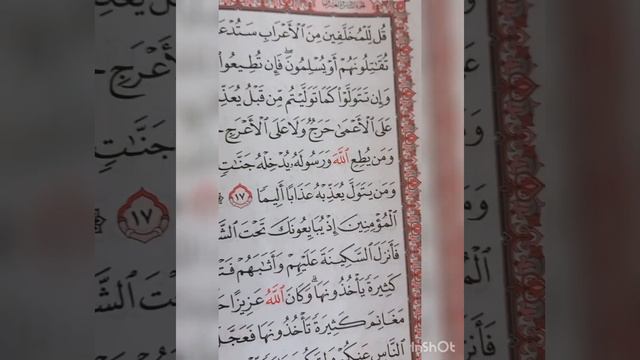 قُل لِّلْمُخَلَّفِينَ مِنَ ٱلْأَعْرَابِ سَتُدْعَ
تُقَـٰتِلُونَهُمْ أَوْ يُسْلِمُونَ ۖ فَإِن تُطِيعُوا۟
وَإِن تَتَوَلَّوْا۟ كَمَا تَوَلَّيْتُم مِّن قَبْلُ يُعَذِّ
عَلَى ٱلْأَعْمَىٰ حَرَجٌ وَلَا عَلَى ٱلْأَعْرَجِ حَ
وَمَن يُطِعِ ٱللَّهَ وَرَسُولَهُۥ يُدْخِلْهُ جَنَّـٰتٍ
وَمَن يَتَوَلَّ يُعَذِّبْهُ عَذَابًا أَلِيمًا ١٧
ٱلْمُؤْمِنِينَ إِذْ يُبَايِعُونَكَ تَحْتَ ٱلشَّ
فَأَنزَلَ ٱلسَّكِينَةَ عَلَيْهِمْ وَأَثَـٰبَهُمْ فَتْ
كَثِيرَةً يَأْخُذُونَهَا ۗ وَكَانَ ٱللَّهُ عَزِيزًا حَ
مَغَانِمَ كَثِيرَةً تَأْخُذُونَهَا فَعَجَّلَ
ٱلنَّاسِ عَنكُمْ
InShOt